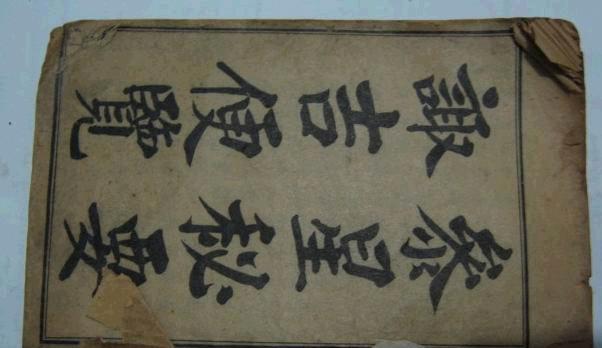 參星秘要
諏吉便覽